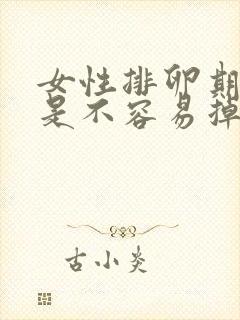 女性排卵期
是不容易掉
古小炎